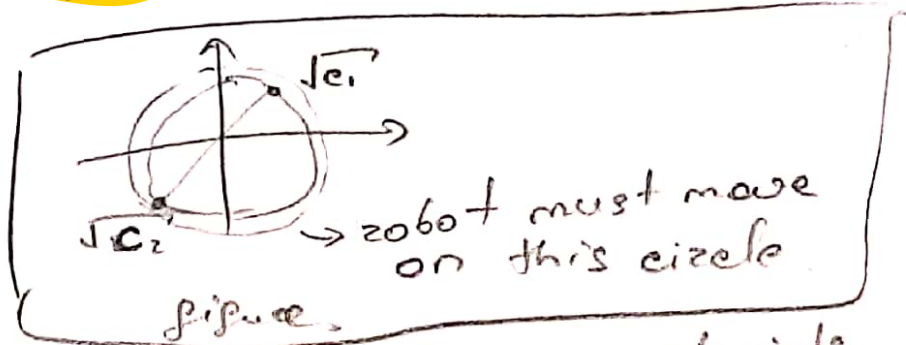 √c₁
√c₂
→ robot must move
on this circle
figure